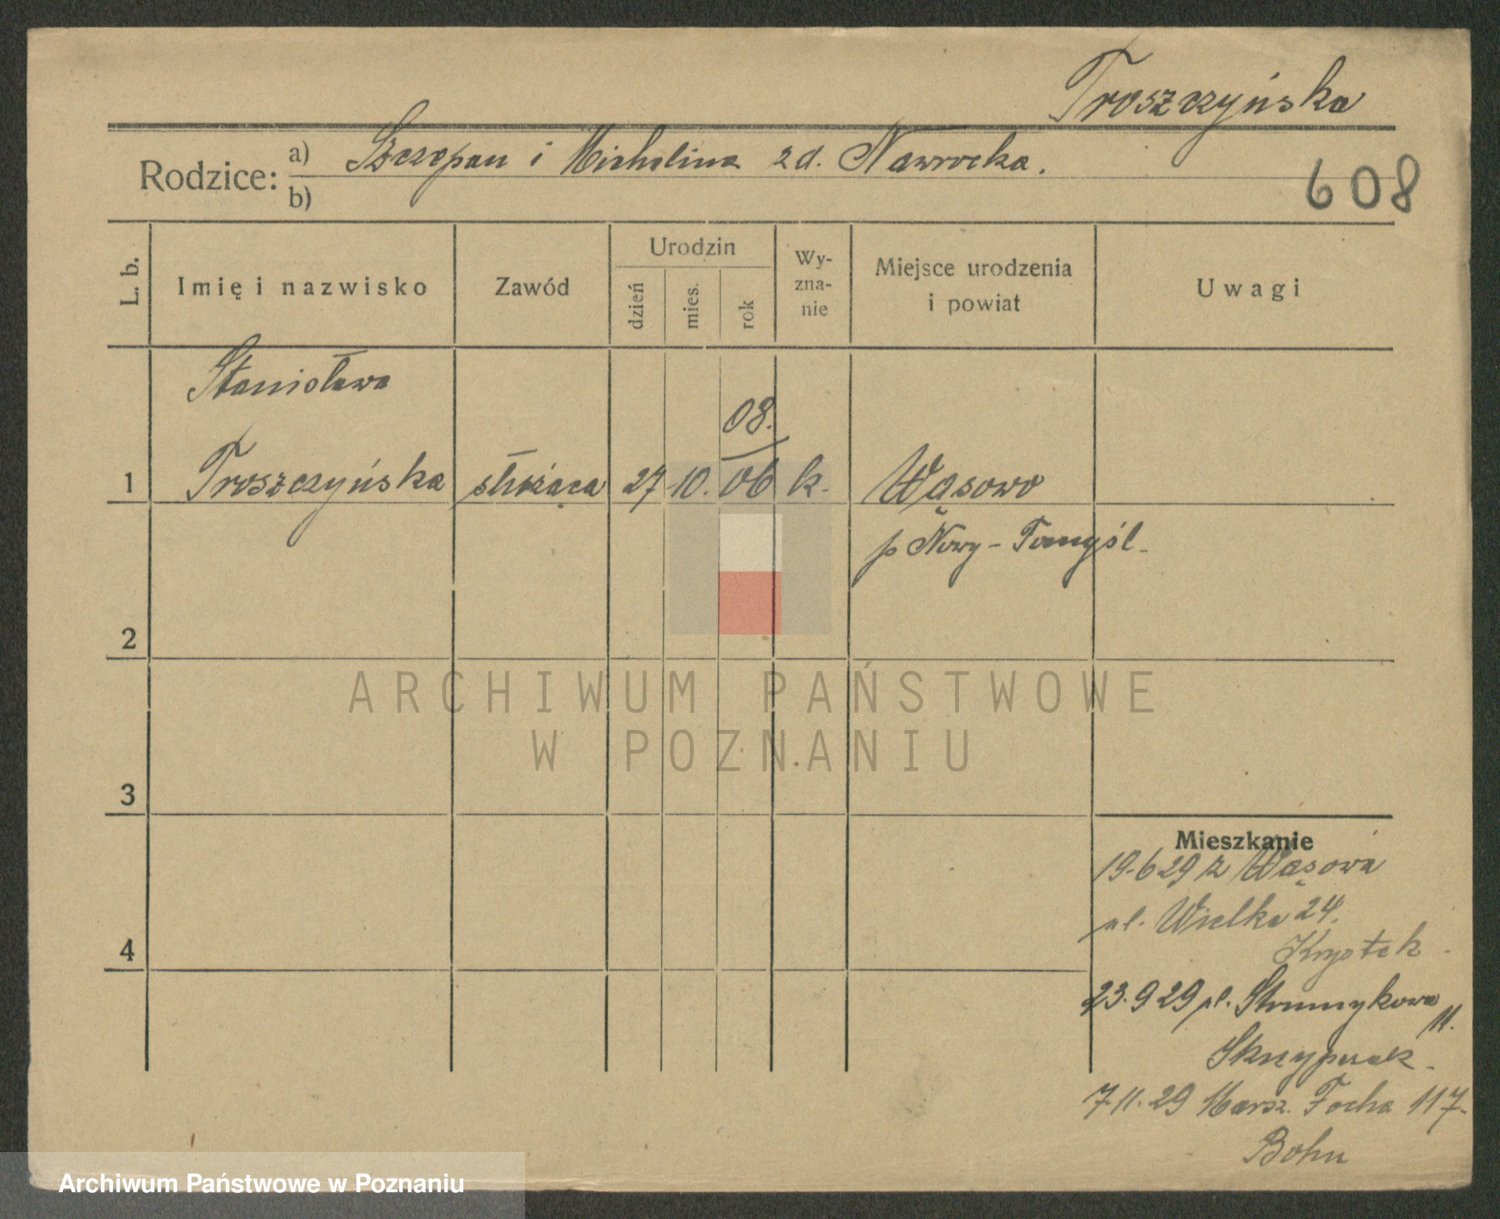 Troszczyńska
Rodzice: a) Szczepan i Michalina zd. Nawrocka.
b)
608
L. b.
Imię i nazwisko
Zawód
Urodzin
dzień
mies.
rok
Wy-
zna-
nie
Miejsce urodzenia
i powiat
Uwagi
Stanisława
08.
1 Troszczyńska służąca 27 10. 06 k. Wąsowo
p Nowy-Tomyśl.
2
ARCHIWUM PAŃSTWOWE
W POZNANIU
3
Mieszkanie
19.6 29 z Wąsowa
ul. Wielka 24.
4
Krystek
23.9 29 pl. Strumykowa
11.
Skrzypczak.
7.11.29 Marsz. Focha 117.
Bohn
Archiwum Państwowe w Poznaniu